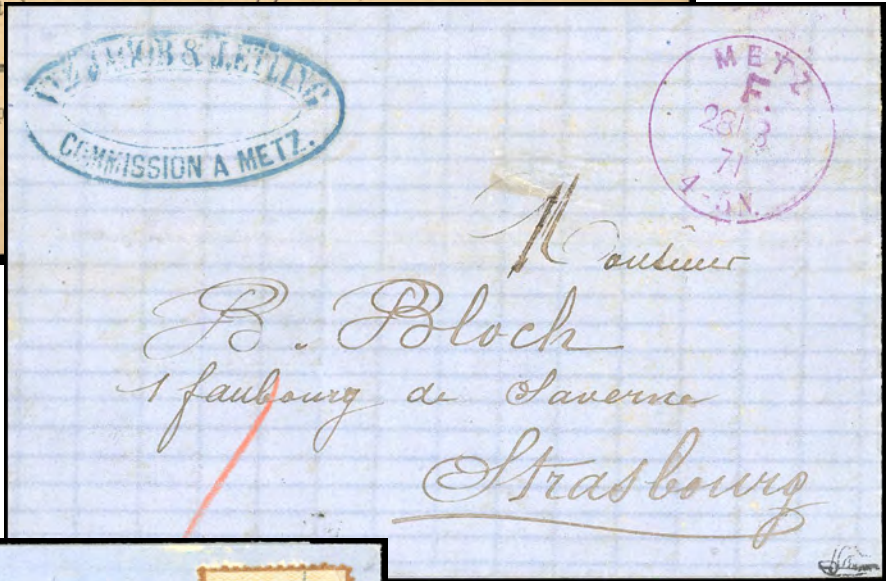 JACOB & J. ETLING
COMMISSION A METZ.
METZ
F.
28/3
71
4-5N.
Monsieur
B. Bloch
1 faubourg de Saverne
Strasbourg